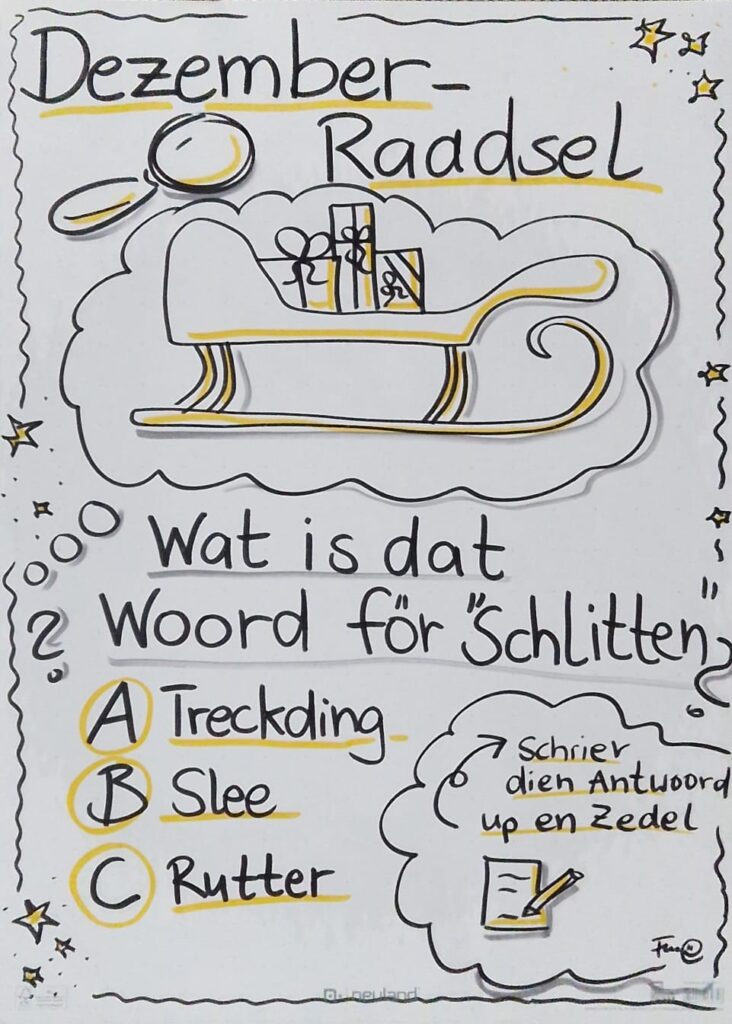 Dezember-
Raadsel
Wat is dat
Woord för "Schlitten"
?
?
A Treckding
B Slee
C Rutter
Schrier
dien Antwoord
up en Zedel
neuland